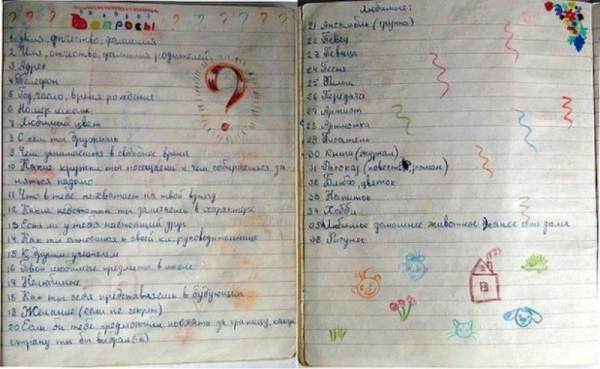 Вопросы
1. Имя, отчество, фамилия
2. Имя, отчество, фамилия родителей
3. Адрес
4 Телефон
5 Год, число, время рождения
6 Номер школы
7 Любимый цвет
8 С кем ты дружишь
9 Чем занимаешься в свободное время
10 Какие кружки ты посещаешь и чем собираешься за
няться надолго
11 Что в тебе нехватает на твой взгляд
12 Какие недостатки ты замечаешь в характере
13 Есть ли у тебя настоящий друг
14 Как ты относишься к своей кл. руководительнице
15 К другим учителям
16 Твои любимые предметы в школе
17 Нелюбимые
18 Как ты себя представляешь в будующем
19 Желание (если не секрет)
20 Если бы тебе предложили поехать за границу, какую
страну ты бы выбрал(-а)
Любимые:
21 Ансамбль (группа)
22 Певец
23 Певица
24 Песня
25 Фильм
26 Передача
27 Артист
28 Артистка
29 Писатель
30 Книга (журнал)
31 Рассказ (повесть, роман)
32 Блюдо, цветок
33 Напиток
34 Хобби
35 Любимое домашнее животное
36 Рисунок